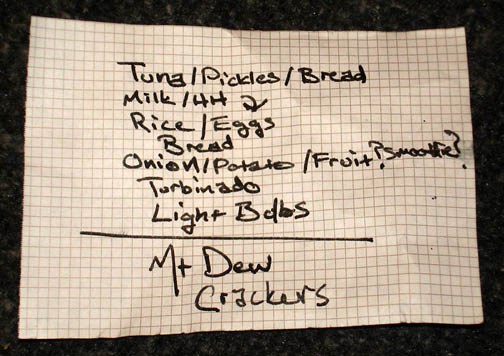 Tuna/Pickles/Bread
Milk/HH 2
Rice/Eggs
Bread
Onion/Potato/Fruit? ?smoothie?
Turbinado
Light Bulbs
Mt Dew
Crackers